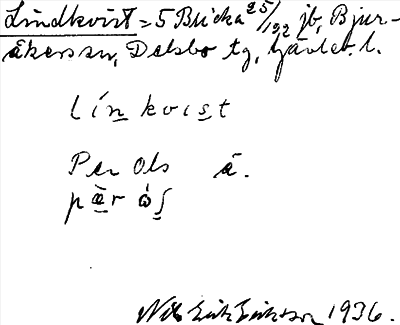 Lindkvist = 5 Bricka 25/192 jb, Bjur-
åkers sn, Delsbo tg, Gävleb. l.
lín kvıst
Per Ols á.
pær ós
Nils Erik Eriksson 1936.